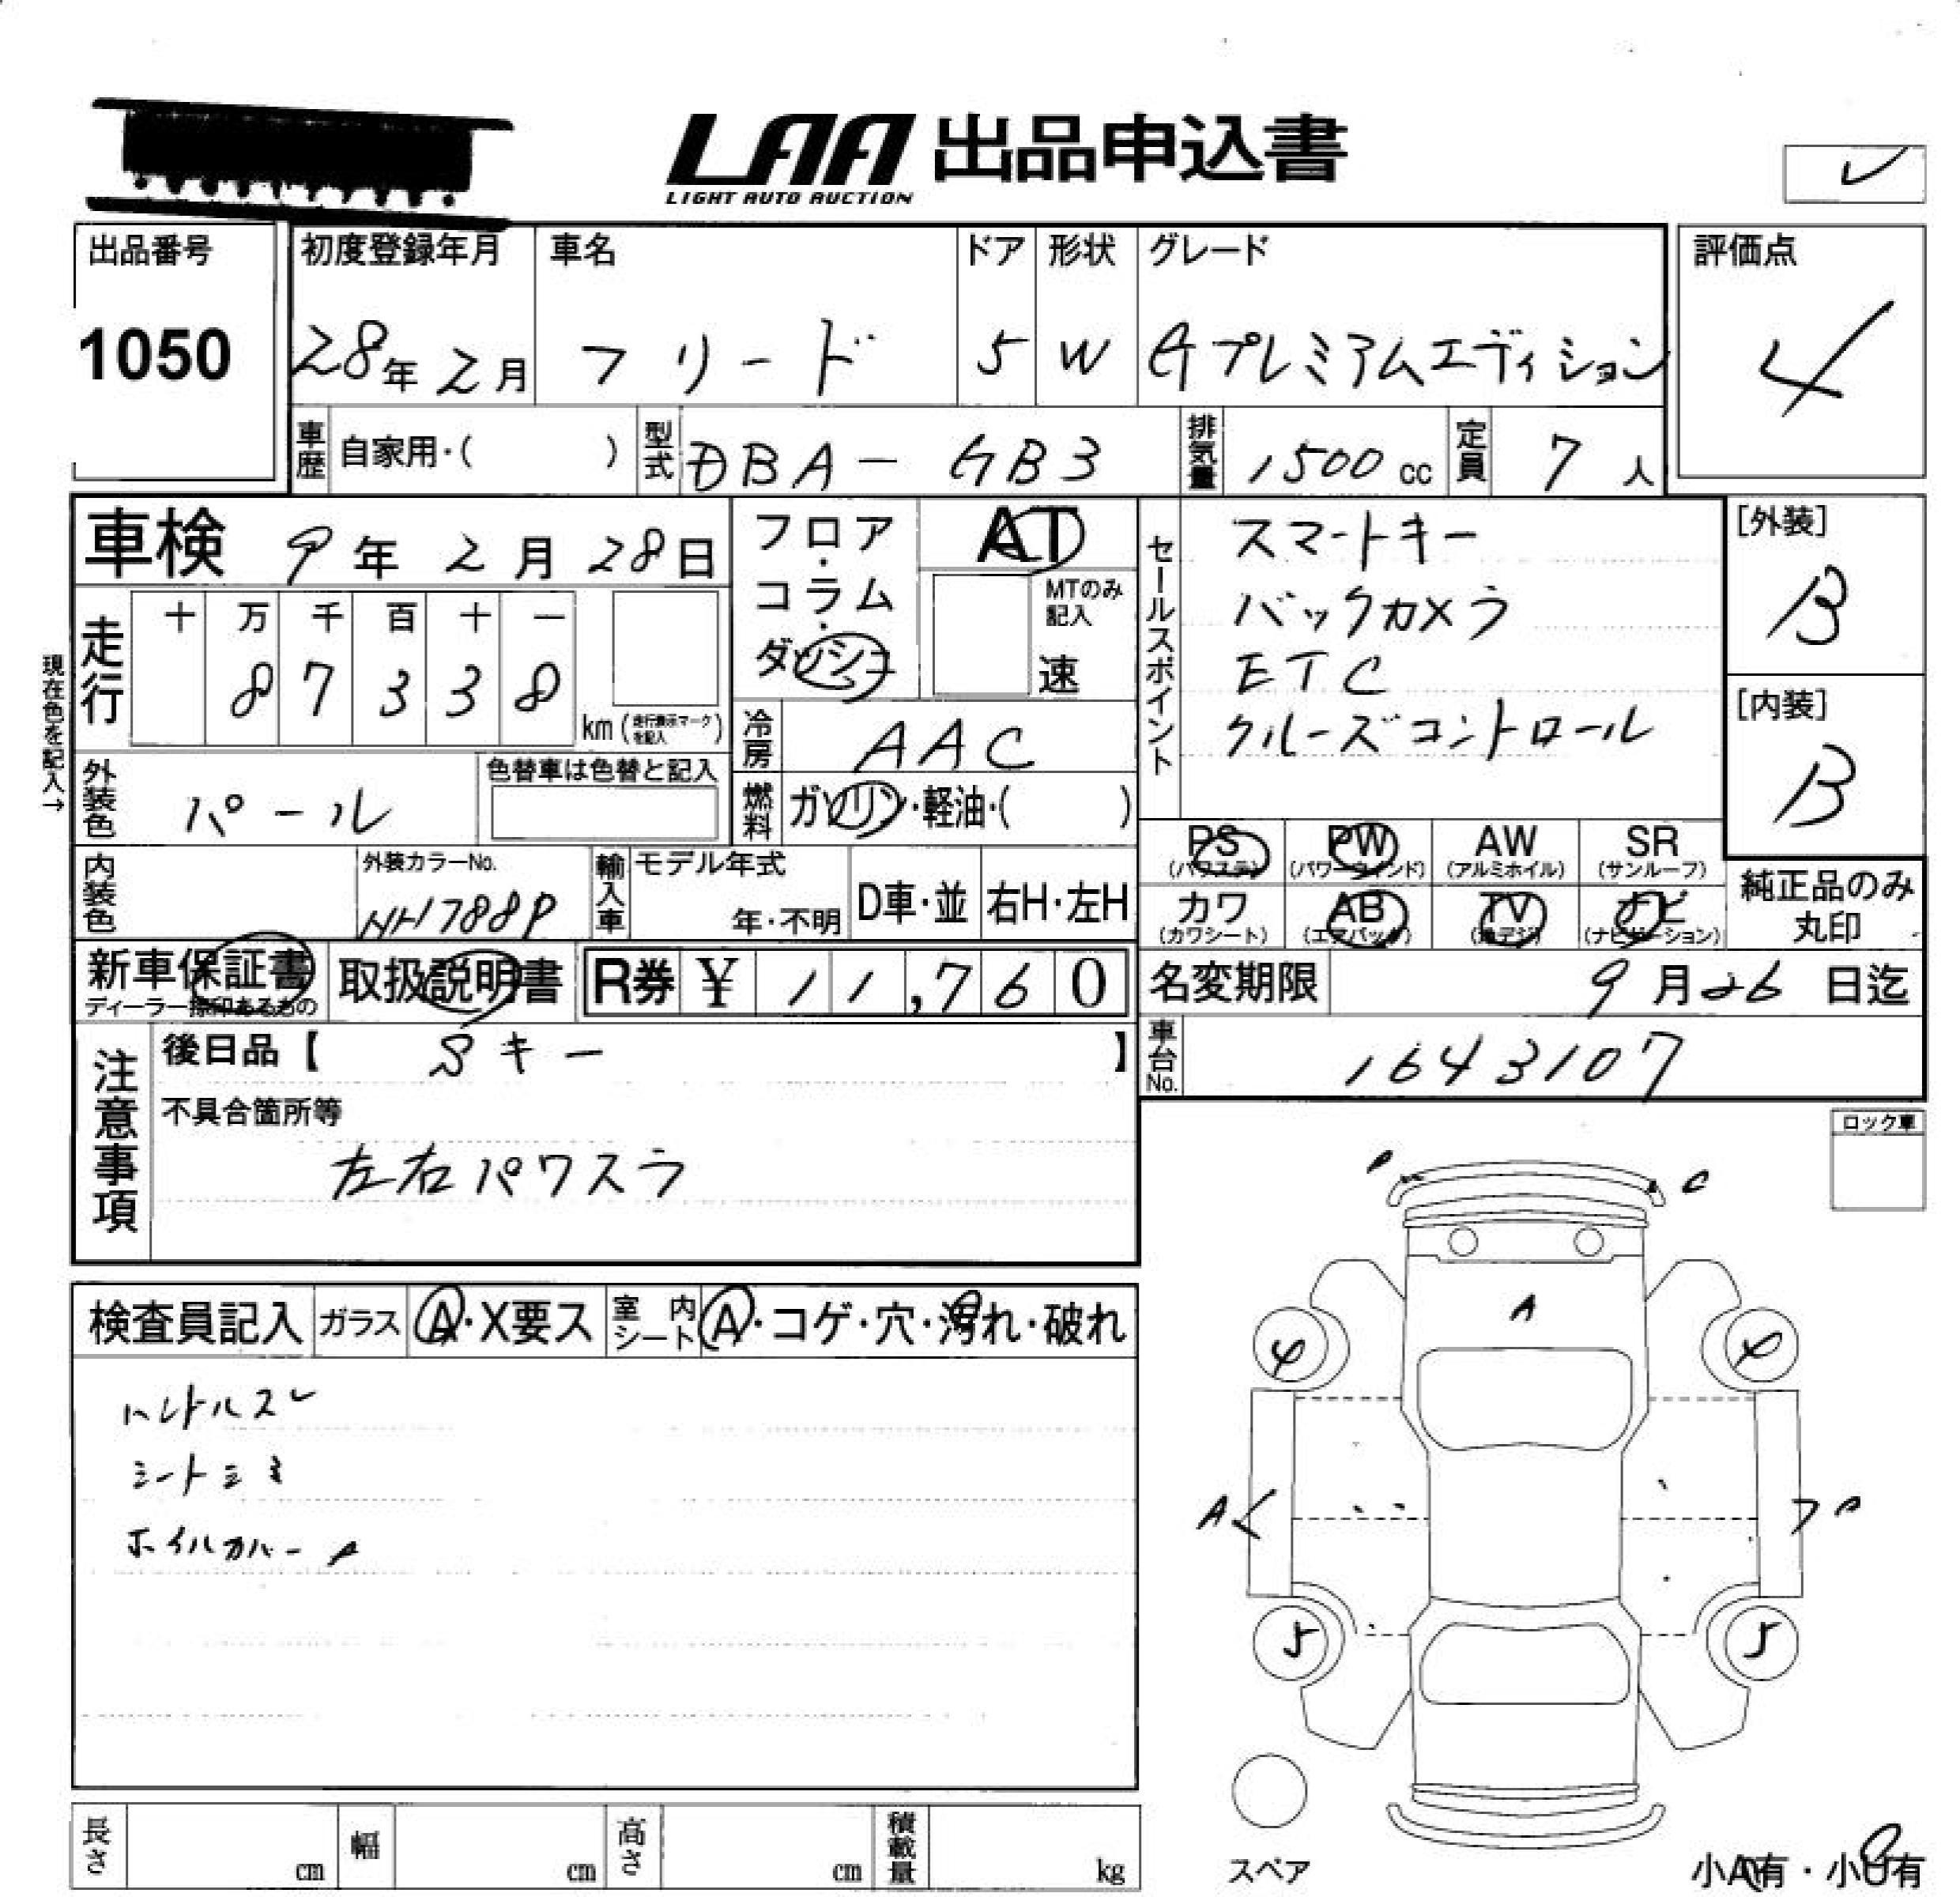 LAA 出品申込書
LIGHT AUTO AUCTION
レ
出品番号 初度登録年月 車名 ドア 形状 グレード 評価点
1050 28年 2月 フリード 5 W Gプレミアムエディション 4
車歴 自家用・( ) 型式 DBA-GB3 排気量 1500cc 定員 7人
車検 9年 2月 28日 フロア・コラム・ダッシュ AT
MTのみ記入 速
セールスポイント スマートキー
バックカメラ
ETC
クルーズコントロール
[外装] B
[内装] B
現在色を記入→
走行 十 万 千 百 十 一
8 7 3 3 8 km (走行表示マークを記入)
冷房 AAC
外装色 パール 色替車は色替と記入
燃料 ガソリン・軽油・( )
PS (パワステ) PW (パワーウインド) AW (アルミホイル) SR (サンルーフ)
カワ (カワシート) AB (エアバッグ) TV (地デジ) ナビ (ナビゲーション)
純正品のみ丸印
内装色 外装カラーNo. NH788P 輸入車 モデル年式 年・不明 D車・並 右H・左H
新車保証書 ディーラー捺印あるもの 取扱説明書 R券 ¥ 11,760
名変期限 9月26日迄
車台No. 1643107
注意事項 後日品【 Sキー 】
不具合箇所等
左右パワスラ
ロック車
検査員記入 ガラス A・X要ス 室内シート A・コゲ・穴・汚れ・破れ
ハンドルスレ
シートシミ
ホイルカバーA
C
A
4 4
A
5 5
スペア
長さ cm 幅 cm 高さ cm 積載量 kg
小A有・小U有